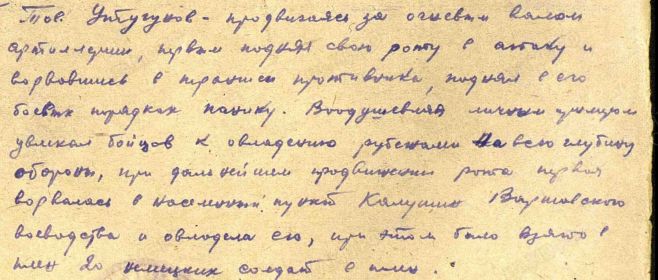 Тов. Утугунов - продвигаясь за огневым валом
артиллерии, первым поднял свою роту в атаку и
ворвавшись в траншеи противника, поднял в его
боевых порядках панику. Воодушевляя личным примером
увлекал бойцов к овладению рубежами на всю глубину
обороны, при дальнейшем продвижении рота первая
ворвалась в населенный пункт Калушин Варшавского
воеводства и овладела ею, при этом было взято в
плен 20 немецких солдат в плен.